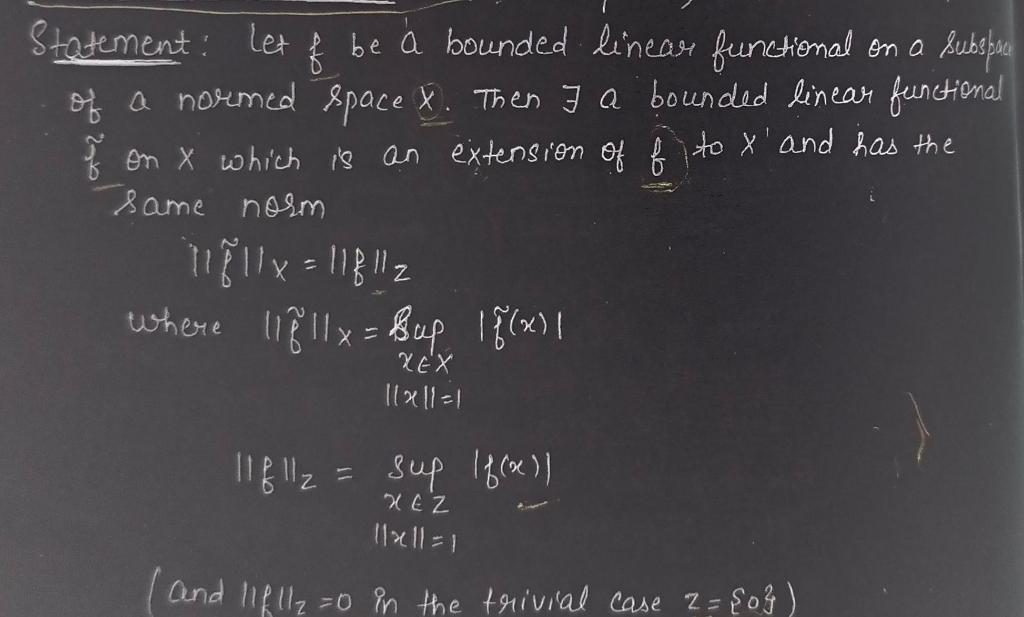 Statement: Let f be a bounded linear functional on a subspace
of a normed space X. Then ∃ a bounded linear functional
f̃ on X which is an extension of f to X' and has the
same norm
||f̃||x = ||f||z
where ||f̃||x = Sup |f̃(x)|
x∈X
||x||=1
||f||z = sup |f(x)|
x∈Z
||x||=1
(and ||f||z =0 in the trivial case z={0})